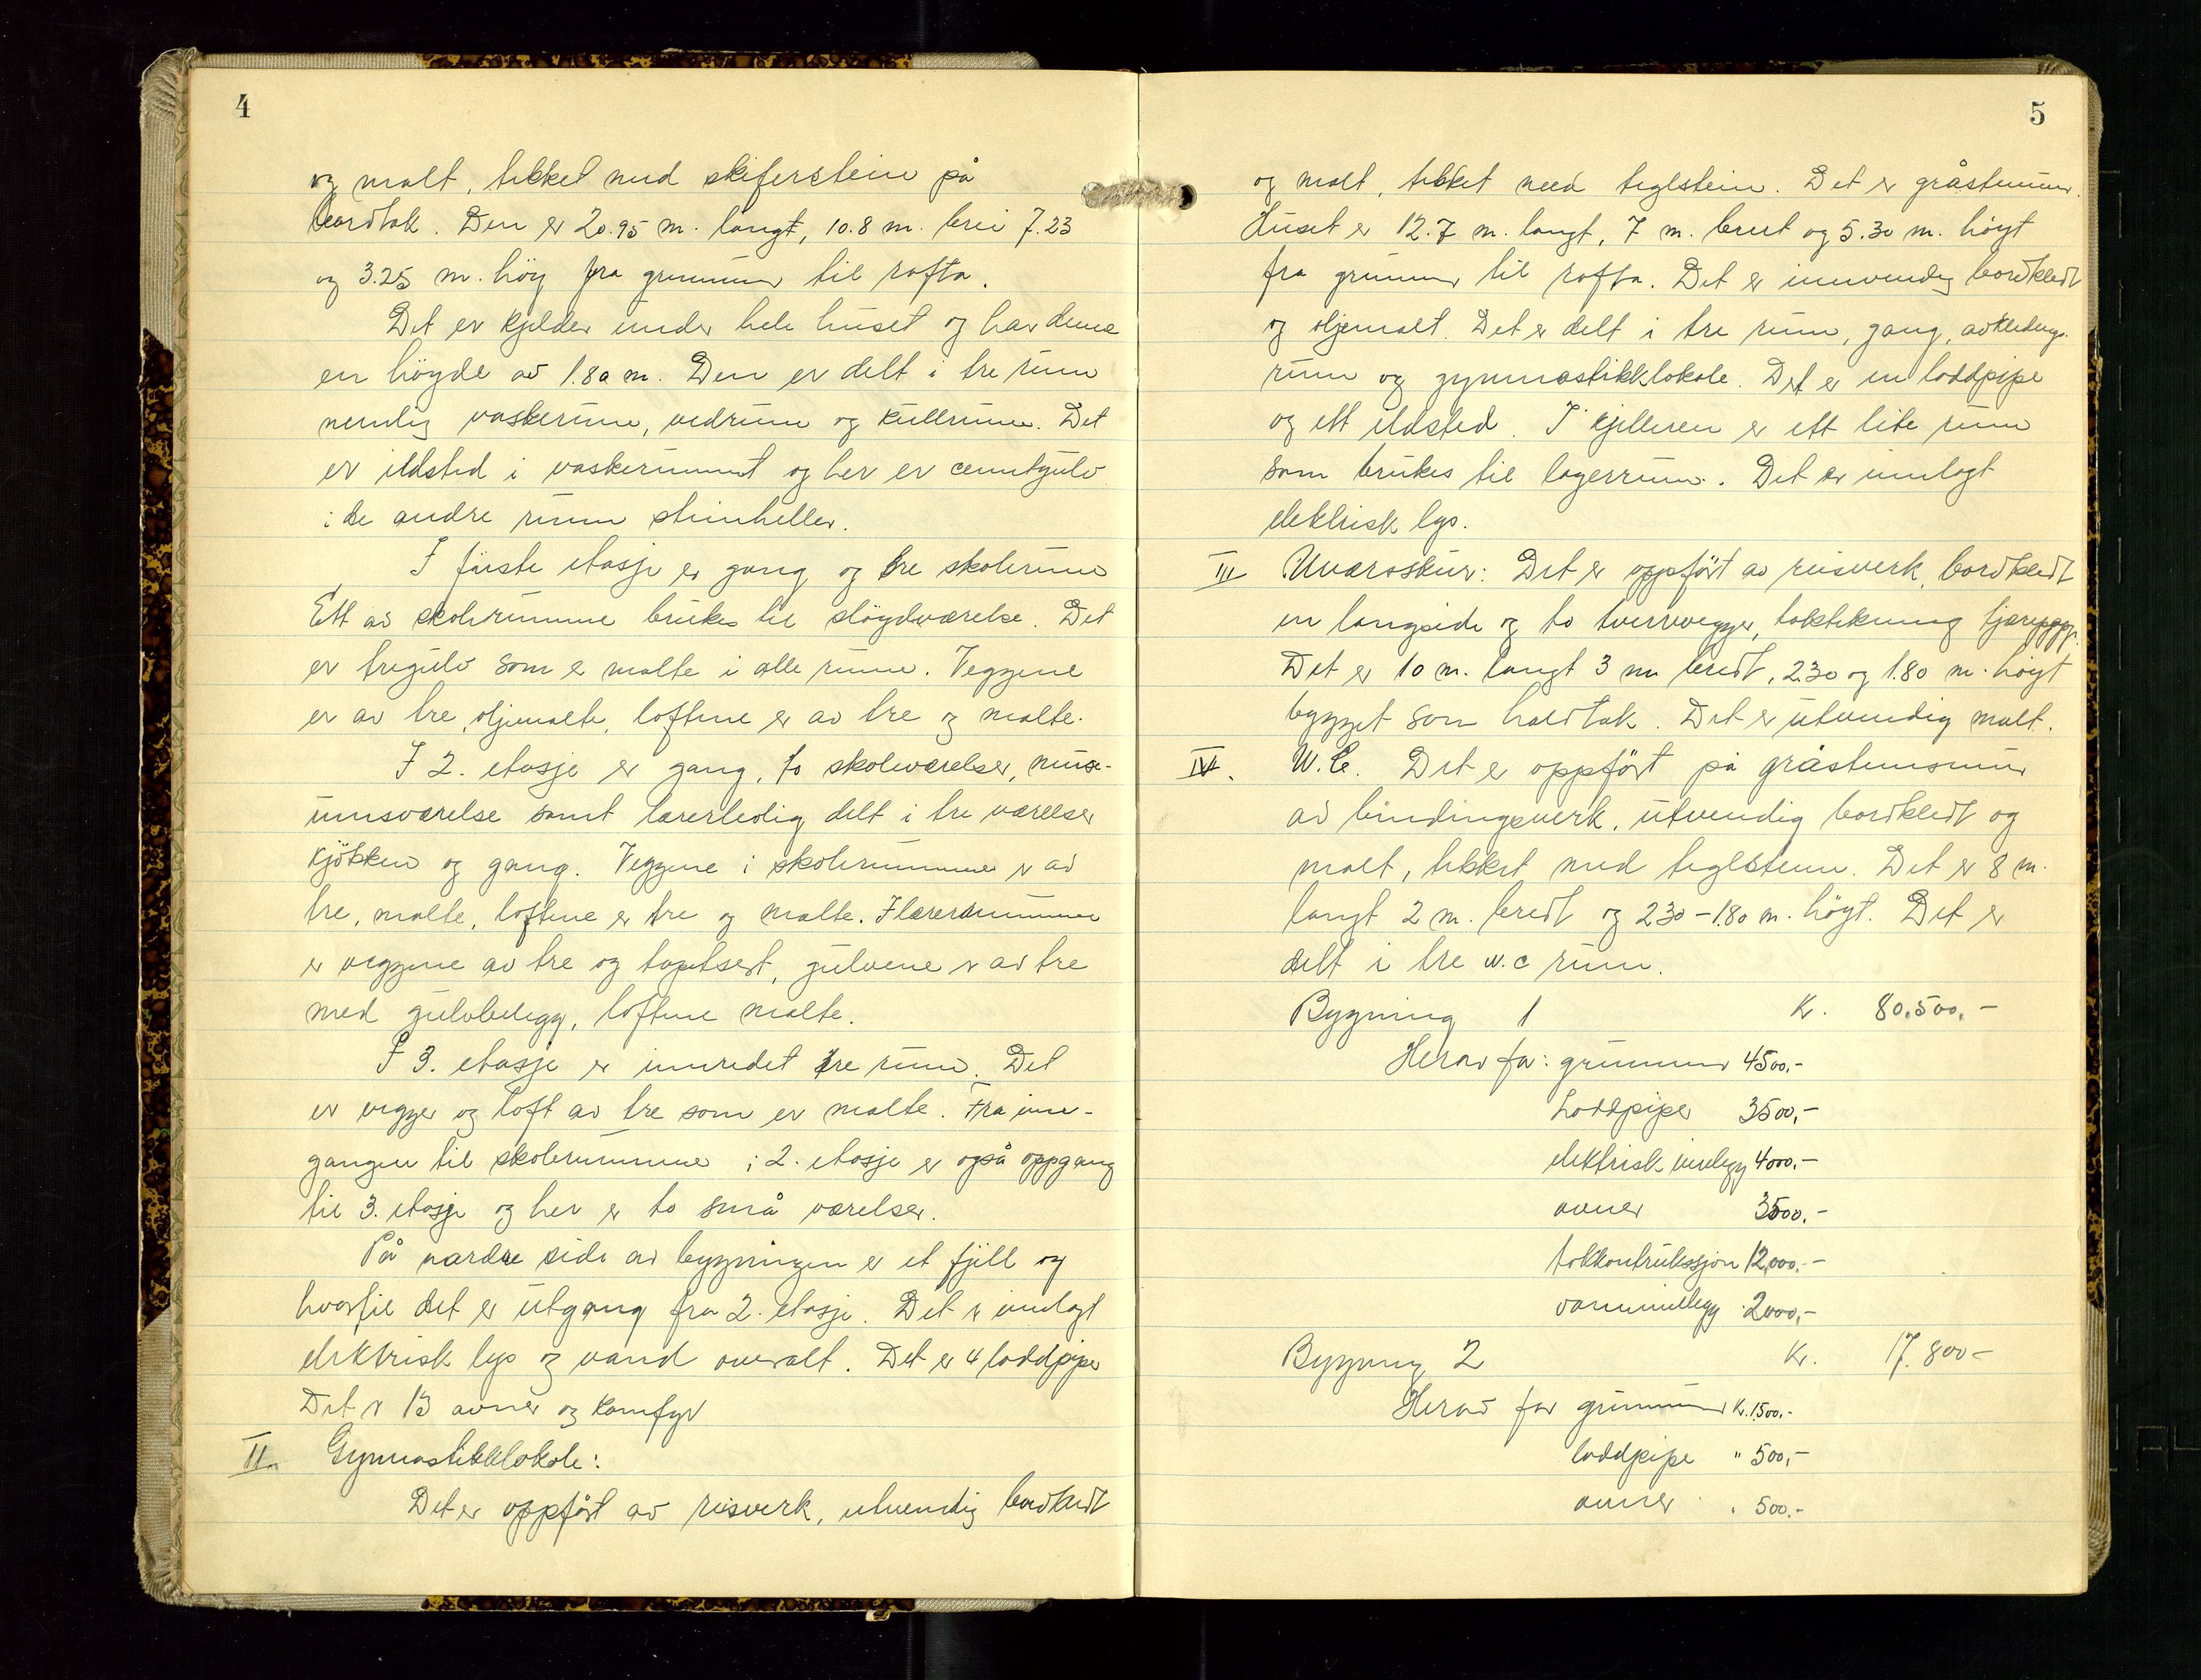 4
og malt, tekket med skiferstein på
bordtak. Den er 20.95 m. langt, 10.8 m. brei 7.23
og 3.25 m. höy fra grunnmur til rafta.
Det er kjelder under hele huset og har denne
en höyde av 1.80 m. Den er delt i tre rum
nemlig vaskerum, vedrum og kullrum. Det
er ildsted i vaskerummet og her er cementgulv
i de andre rum steinheller.
I første etasje er gang og tre skolerum
Ett av skolerummene brukes til slöydværelse. Det
er tregulv som er malte i alle rum. Veggene
er av tre, oljemalte, loftene er av tre og malte.
I 2. etasje er gang, to skoleværelser, muse-
umsværelse samt lærerbolig delt i tre værelser
kjökken og gang. Veggene i skolerummene er av
tre, malte, loftene er tre og malte. I lærerrummene
er veggene av tre og tapetsert, gulvene er av tre
med gulvbelegg, loftene malte.
I 3. etasje er innredet tre rum. Det
er vegger og loft av tre som er malte. Fra inn-
gangen til skolerummene i 2. etasje er også oppgang
til 3. etasje og her er to små værelser.
På nordre side av bygningen er et fjell og
hvortil det er utgang fra 2. etasje. Det er innlagt
elektrisk lys og vand overalt. Det er 4 loddpiper
Det er 13 ovner og komfyr
II. Gymnastikklokale:
Det er oppført av reisverk, utvendig bordkledt
5
og malt, tekket med teglstein. Det er gråstenmur.
Huset er 12.7 m. langt, 7 m. bredt og 5.30 m. høyt
fra grunnmur til rafta. Det er innvendig bordkledt
og oljemalt. Det er delt i tre rum, gang, avklednings-
rum og gymnastikklokale. Det er en loddpipe
og ett ildsted. I kjelleren er ett lite rum
som brukes til lagerrum. Det er innlagt
elektrisk lys.
III Uværsskur: Det er oppført av reisverk, bordkledt
en langside og to tverrvegger, taktekning tjærepapp.
Det er 10 m. langt 3 m bredt, 2.30 og 1.80 m. høyt
bygget som halvtak. Det er utvendig malt.
IV. W.C. Det er oppført på gråstensmur
av bindingsverk, utvendig bordkledt og
malt, tekket med teglstein. Det er 8 m.
langt 2 m. bredt og 2.30 - 1.80 m. høyt. Det er
delt i tre w.c rum.
Bygning 1 Kr. 80.500,-
Herav for: grunnmur 4500,-
Loddpiper 3500,-
elektrisk innlegg 4000,-
ovner 3500,-
takkontruksjon 12,000.-
vanninnlegg 2000,-
Bygning 2 Kr. 17.800-
Herav for grunnmur Kr. 1500,-
loddpipe " 500,-
ovner " 500.-